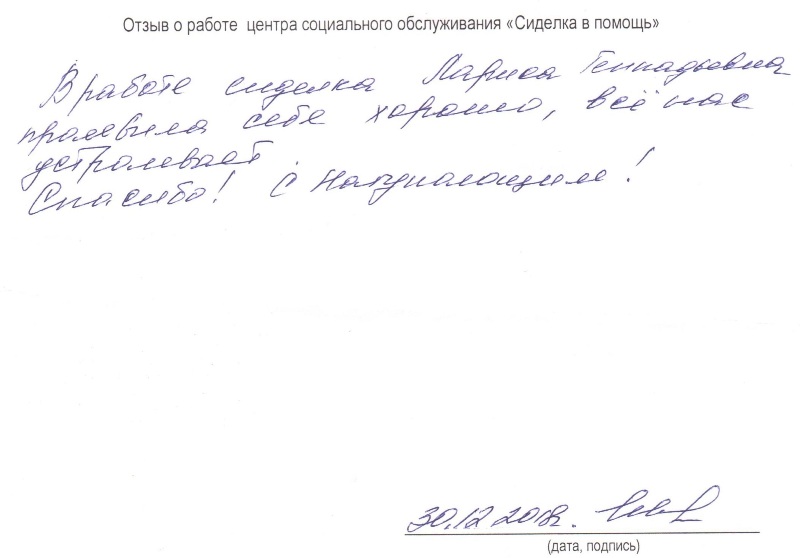 Отзыв о работе центра социального обслуживания «Сиделка в помощь»
В работе сиделка Лариса Геннадьевна
проявила себя хорошо, всё нас
устраивает.
Спасибо! С Наступающим!
30.12 2018г.
(дата, подпись)